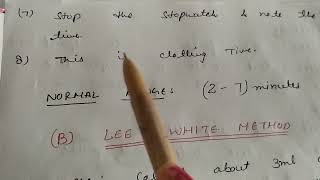 (7) Stop the Stopwatch & note the
time.
8) This is clotting Time.
NORMAL RANGES (2-7) minutes
(B) LEE WHITE METHOD
about 3ml